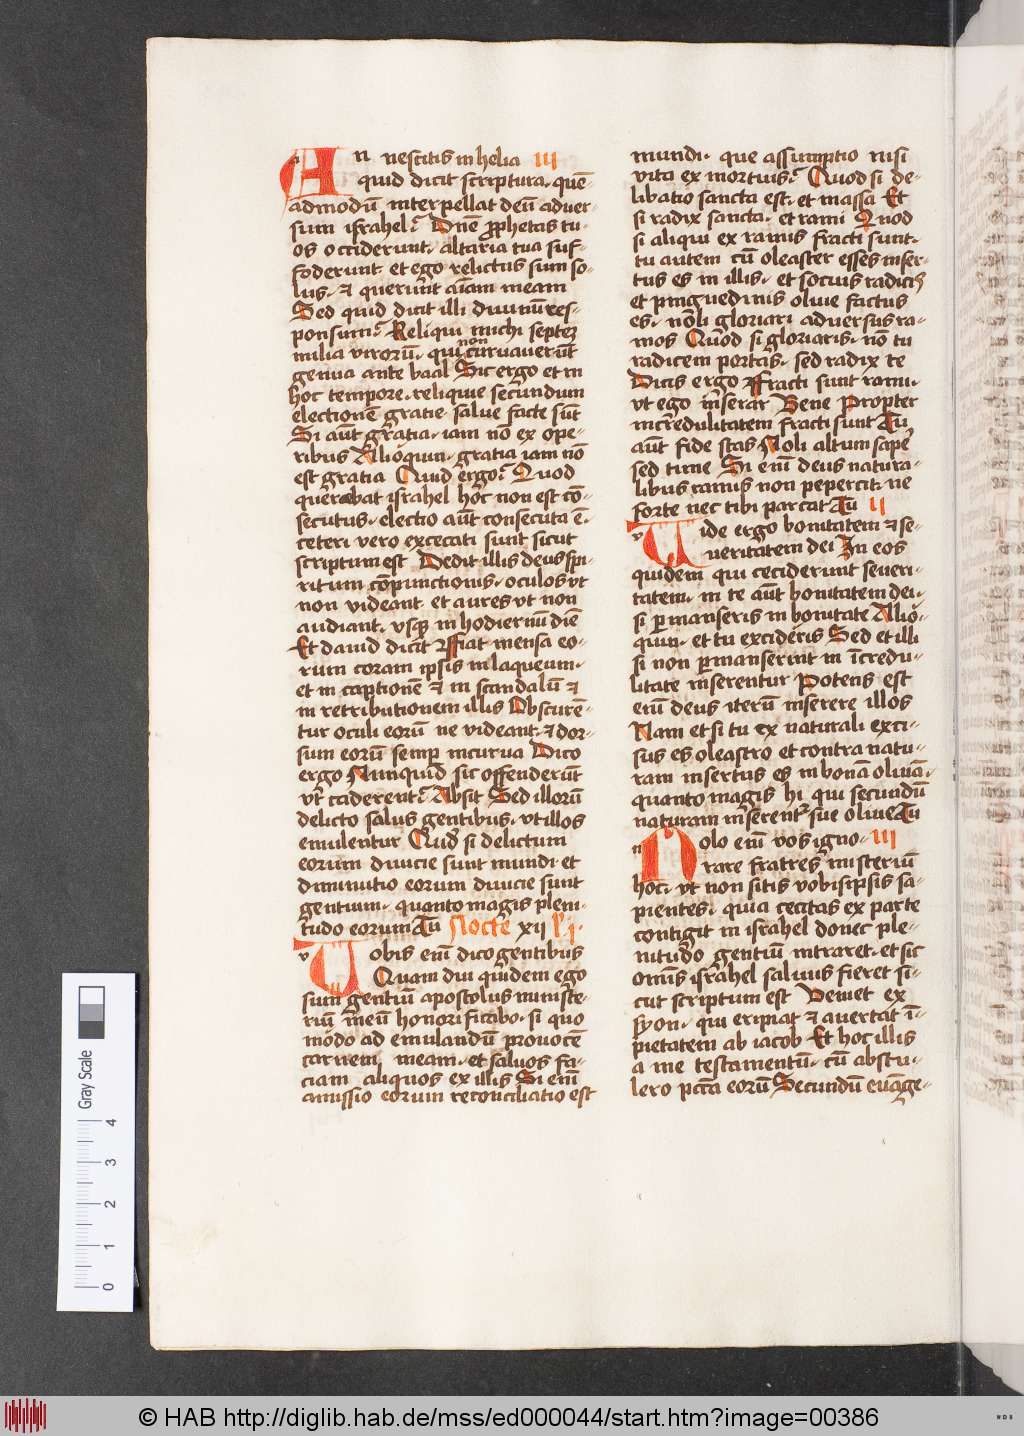 An nescitis in helia III
quid dicit scriptura. quē-
admodū interpellat deū adver-
sum israhel? Dnē prophetas tu-
os occiderunt. altaria tua suf-
foderunt et ego relictus sum so-
lus. et querūt aīam meam
Sed quid dicit illi divinū res-
ponsum? Reliqui michi septez
milia virorū. qui non curvaverūt
genua ante baal Sic ergo et in
hoc tempore. reliquie secundum
electionē gratie salve facte sūt
Si aūt gratia. iam nō ex ope-
ribus Alioquin. gratia iam nō
est gratia Quid ergo? Quod
querebat israhel hoc non est cō-
secutus. electio aūt consecuta ē.
ceteri vero excecati sunt sicut
scriptum est Dedit illis deus spi-
ritum cōpunctionis. oculos vt
non videant et aures vt non
audiant. vsq in hodiernū diē
Et david dicit Fiat mensa eo-
rum coram ipsis in laqueum.
et in captionē et in scandalū et
in retributionem illis Obscurē-
tur oculi eorū ne videant. et dor-
sum eorū semp incurva Dico
ergo Nunquid sic offenderūt
vt caderent? Absit Sed illorū
delicto salus gentibus. vt illos
emulentur Quod si delictum
eorum divicie sunt mundi et
diminutio eorum divicie sunt
gentium. quanto magis pleni-
tudo eorum Tu Nocte xii l' i.
Vobis enī dico gentibus
Quam diu quidem ego
sum gentiū apostolus ministe-
riū meū honorificabo. si quo
modo ad emulandū provocē
carnem meam. et salvos fa-
ciam aliquos ex illis Si enī
amissio eorum reconciliatio est
mundi. que assumptio nisi
vita ex mortuis? Quod si de-
libatio sancta est. et massa Et
si radix sancta. et rami Quod
si aliqui ex ramis fracti sunt.
tu autem cū oleaster esses inser-
tus es in illis. et socius radicis
et pinguedinis olive factus
es. nōli gloriari adversus ra-
mos Quod si gloriaris. nō tu
radicem portas. sed radix te
Dicis ergo Fracti sunt rami.
vt ego inserar Bene Propter
incredulitatem fracti sunt Tu
aūt fide stas Noli altum sape
sed time Si enī deus natura-
libus ramis non pepercit. ne
forte nec tibi parcat Tu II
Vide ergo bonitatem et se-
veritatem dei In eos
quidem qui ceciderunt severi-
tatem. in te aūt bonitatem dei.
si pmanseris in bonitate Alio-
quin. et tu excideris Sed et illi
si non pmanserint in īcredu-
litate inserentur Potens est
enī deus iterū inserere illos
Nam et si tu ex naturali exci-
sus es oleastro et contra natu-
ram insertus es in bonā olivā.
quanto magis hi qui secundū
naturam inserent sue olive Tu
Nolo enī vos igno- III
rare fratres misteriū
hoc. vt non sitis vobisipsis sa-
pientes. quia cecitas ex parte
contigit in israhel donec ple-
nitudo gentiū intraret. et sic
omīs israhel salvus fieret si-
cut scriptum est Veniet ex
syon. qui eripiat et avertat ī-
pietatem ab iacob Et hoc illis
a me testamentū. cū abstu-
lero pctā eorū Secundū evāge-
Gray Scale
0 1 2 3 4
© HAB http://diglib.hab.de/mss/ed000044/start.htm?image=00386